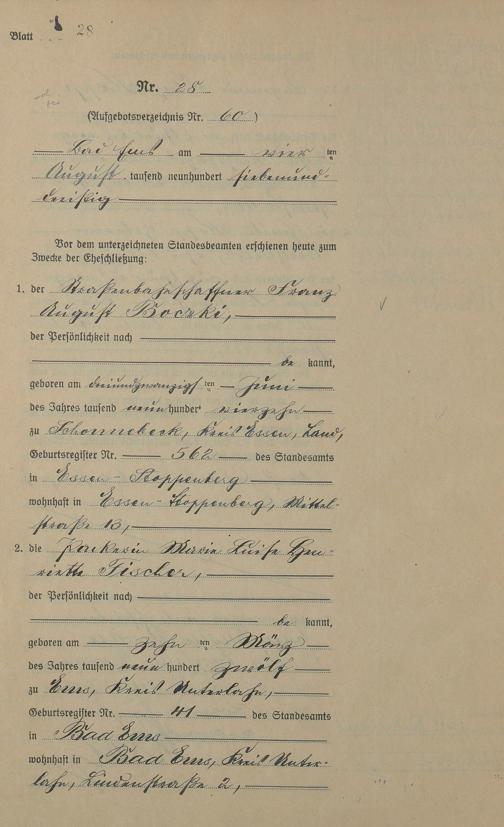 Blatt 28
Nr. 28
(Aufgebotsverzeichnis Nr. 60)
Bad Ems am vier ten
August tausend neunhundert siebenund-
dreißig
Vor dem unterzeichneten Standesbeamten erschienen heute zum
Zwecke der Eheschließung:
1. der Straßenbahnschaffner Franz
August Boczki,
der Persönlichkeit nach
be kannt,
geboren am dreiundzwanzigst ten Juni
des Jahres tausend neunhundert vierzehn
zu Schonnebeck, Kreis Essen, Land,
Geburtsregister Nr. 562 des Standesamts
in Essen-Stoppenberg
wohnhaft in Essen-Stoppenberg, Mittel-
straße 13,
2. die Packerin Marie Luise Hen-
riette Fischer,
der Persönlichkeit nach
be kannt,
geboren am zehn ten März
des Jahres tausend neun hundert zwölf
zu Ems, Kreis Unterlahn,
Geburtsregister Nr. 41 des Standesamts
in Bad Ems
wohnhaft in Bad Ems, Kreis Unter-
lahn, Lindenstraße 2,